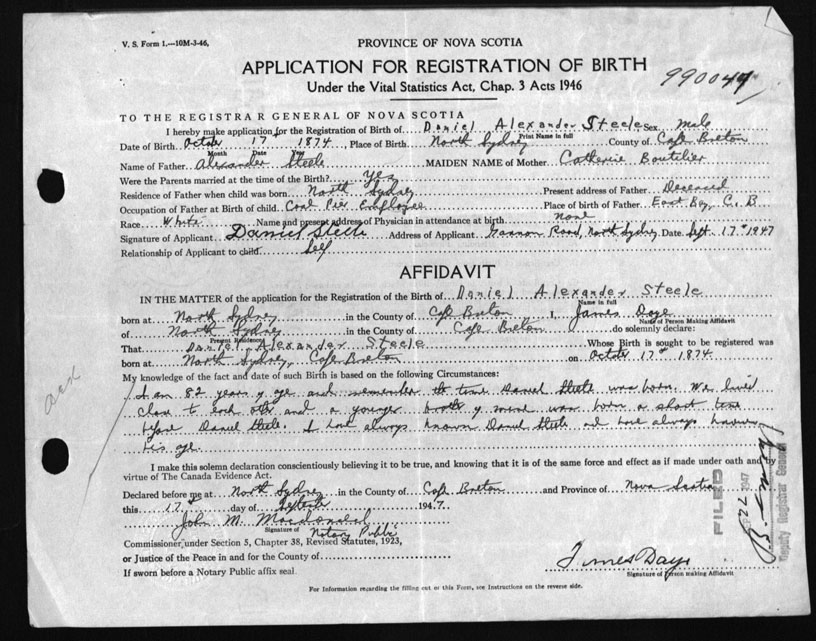 V. S. Form 1.—10M-3-46,
PROVINCE OF NOVA SCOTIA
APPLICATION FOR REGISTRATION OF BIRTH
Under the Vital Statistics Act, Chap. 3 Acts 1946
TO THE REGISTRAR GENERAL OF NOVA SCOTIA
I hereby make application for the Registration of Birth of Daniel Alexander Steele Sex Male
Print Name in full
Date of Birth October 17th 1874, Place of Birth North Sydney County of Cape Breton
Month Date Year
Name of Father Alexander Steele MAIDEN NAME of Mother Catherine Boutilier
Were the Parents married at the time of the Birth? Yes
Residence of Father when child was born North Sydney Present address of Father Deceased
Occupation of Father at Birth of child Coal Pier Employee Place of birth of Father East Bay, C. B
Race White Name and present address of Physician in attendance at birth none
Signature of Applicant Daniel Steele Address of Applicant Gannon Road, North Sydney Date Sept. 17th 1947
Relationship of Applicant to child Self
AFFIDAVIT
IN THE MATTER of the application for the Registration of the Birth of Daniel Alexander Steele
Name in full
born at North Sydney in the County of Cape Breton I, James Daye
Name of Person Making Affidavit
of North Sydney in the County of Cape Breton do solemnly declare:
Present Residence
That Daniel Alexander Steele Whose Birth is sought to be registered was
born at North Sydney, Cape Breton on October 17th 1874
My knowledge of the fact and date of such Birth is based on the following Circumstances:
I am 82 years of age and remember the time Daniel Steele was born. We lived
close to each other and a younger brother of mine was born a short time
before Daniel Steele. I have always known Daniel Steele and have always known
his age.
I make this solemn declaration conscientiously believing it to be true, and knowing that it is of the same force and effect as if made under oath and by
virtue of The Canada Evidence Act.
Declared before me at North Sydney in the County of Cape Breton and Province of Nova Scotia
this 17th day of September 1947.
John M. Macdonald
Signature of Notary Public
Commissioner under Section 5, Chapter 38, Revised Statutes, 1923,
or Justice of the Peace in and for the County of
If sworn before a Notary Public affix seal.
James Daye
Signature of Person making Affidavit
For Information regarding the filling out or this Form, see Instructions on the reverse side.
FILED
SEP 22 1947
Deputy Registrar General